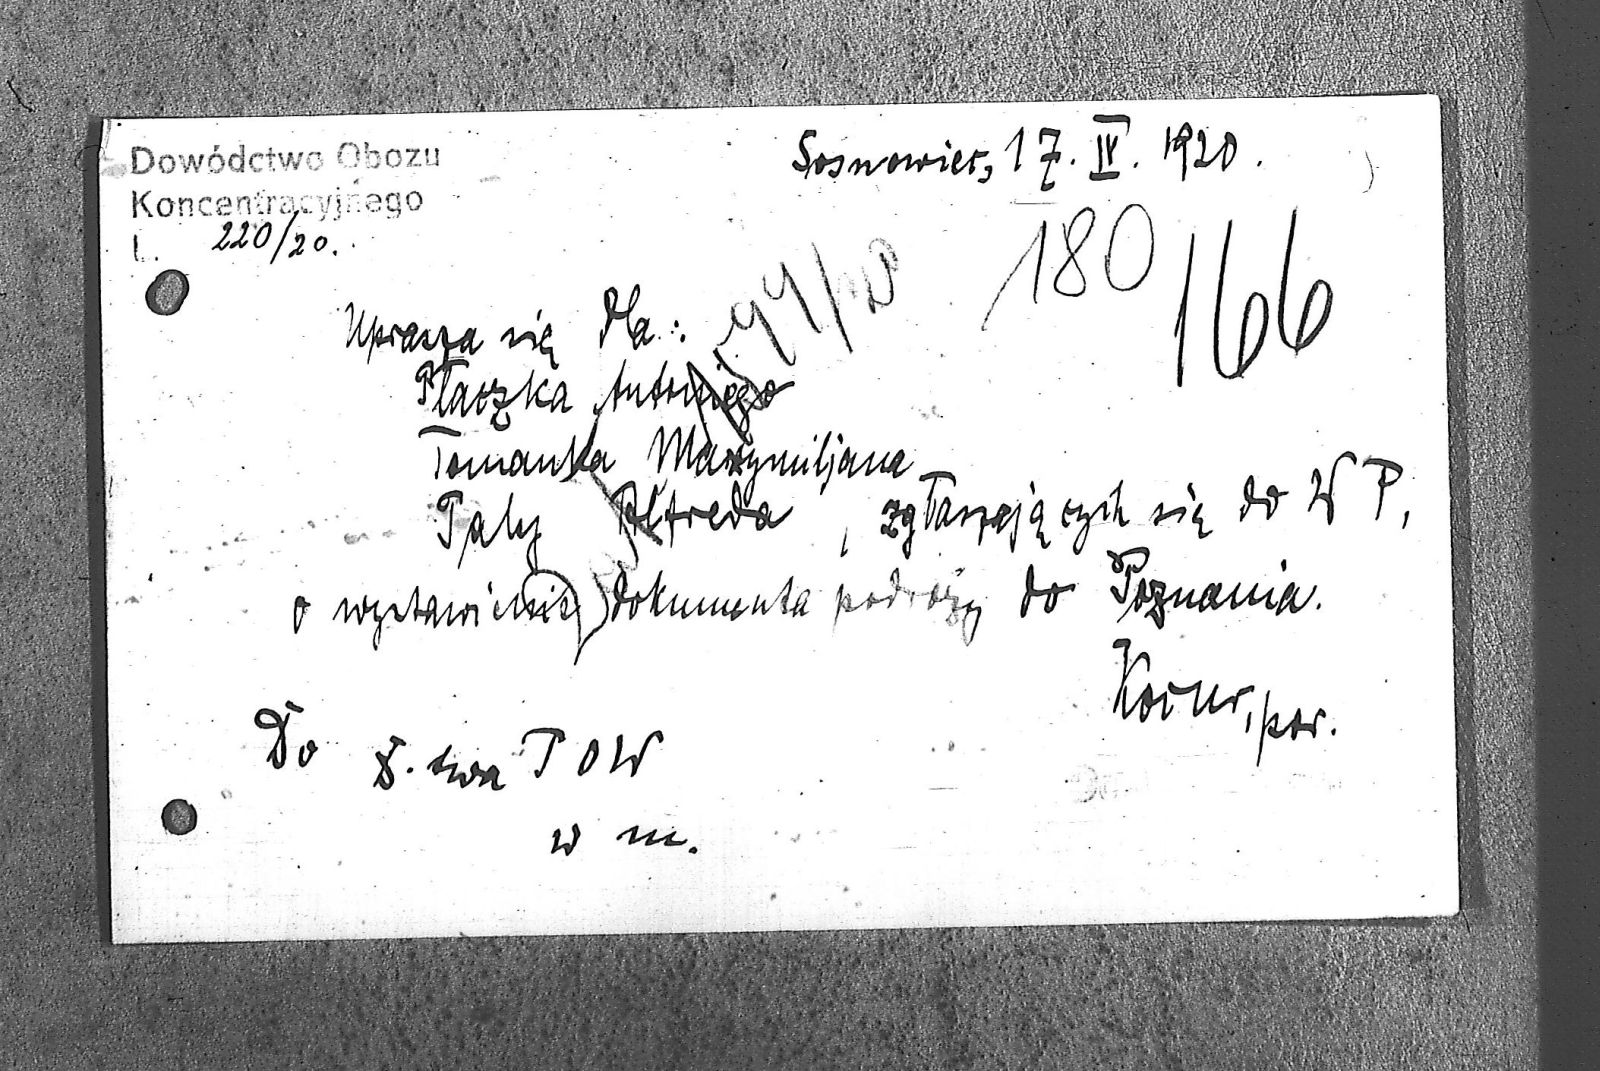 Dowództwo Obozu
Koncentracyjnego
L. 220/20.
Sosnowiec, 17. IV. 1920.
180
166
Uprasza się dla:
Płaczka Antoniego
Tomanka Maxymiljana
Paly Alfreda, zgłaszających się do W P,
o wystawienie dokumenta podróży do Poznania.
por.
Do D. twa P O W
w m.